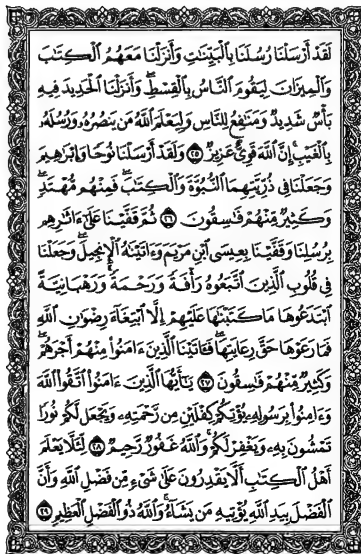 لَقَدْ أَرْسَلْنَا رُسُلَنَا بِالْبَيِّنَٰتِ وَأَنزَلْنَا مَعَهُمُ الْكِتَٰبَ
وَالْمِيزَانَ لِيَقُومَ النَّاسُ بِالْقِسْطِ ۖ وَأَنزَلْنَا الْحَدِيدَ فِيهِ
بَأْسٌ شَدِيدٌ وَمَنَٰفِعُ لِلنَّاسِ وَلِيَعْلَمَ اللَّهُ مَن يَنصُرُهُۥ وَرُسُلَهُۥ
بِالْغَيْبِ ۚ إِنَّ اللَّهَ قَوِىٌّ عَزِيزٌ ٢٥ وَلَقَدْ أَرْسَلْنَا نُوحًا وَإِبْرَٰهِيمَ
وَجَعَلْنَا فِى ذُرِّيَّتِهِمَا النُّبُوَّةَ وَالْكِتَٰبَ ۖ فَمِنْهُم مُّهْتَدٍ ۖ
وَكَثِيرٌ مِّنْهُمْ فَٰسِقُونَ ٢٦ ثُمَّ قَفَّيْنَا عَلَىٰٓ ءَاثَٰرِهِم
بِرُسُلِنَا وَقَفَّيْنَا بِعِيسَى ابْنِ مَرْيَمَ وَءَاتَيْنَٰهُ الْإِنجِيلَ ۖ وَجَعَلْنَا
فِى قُلُوبِ الَّذِينَ اتَّبَعُوهُ رَأْفَةً وَرَحْمَةً ۚ وَرَهْبَانِيَّةً
ابْتَدَعُوهَا مَا كَتَبْنَٰهَا عَلَيْهِمْ إِلَّا ابْتِغَآءَ رِضْوَٰنِ اللَّهِ
فَمَا رَعَوْهَا حَقَّ رِعَايَتِهَا ۖ فَـَٔاتَيْنَا الَّذِينَ ءَامَنُوا۟ مِنْهُمْ أَجْرَهُمْ ۖ
وَكَثِيرٌ مِّنْهُمْ فَٰسِقُونَ ٢٧ يَٰٓأَيُّهَا الَّذِينَ ءَامَنُوا۟ اتَّقُوا۟ اللَّهَ
وَءَامِنُوا۟ بِرَسُولِهِۦ يُؤْتِكُمْ كِفْلَيْنِ مِن رَّحْمَتِهِۦ وَيَجْعَل لَّكُمْ نُورًا
تَمْشُونَ بِهِۦ وَيَغْفِرْ لَكُمْ ۚ وَاللَّهُ غَفُورٌ رَّحِيمٌ ٢٨ لِّئَلَّا يَعْلَمَ
أَهْلُ الْكِتَٰبِ أَلَّا يَقْدِرُونَ عَلَىٰ شَىْءٍ مِّن فَضْلِ اللَّهِ ۙ وَأَنَّ
الْفَضْلَ بِيَدِ اللَّهِ يُؤْتِيهِ مَن يَشَآءُ ۚ وَاللَّهُ ذُو الْفَضْلِ الْعَظِيمِ ٢٩